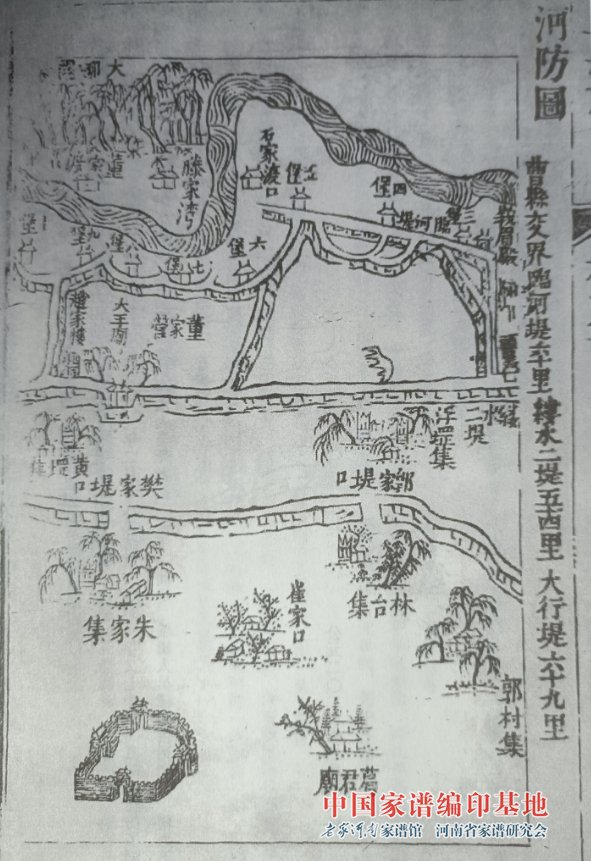 河防圖
曹縣交界臨河堤六里縷水二堤五十四里大行堤六十九里
滕家灣
石家渡口
五堡
四堡
三堡
臨河堤
六堡
七堡
八堡
九堡
董家營
大王廟
縷水二堤
浮堽集
黃堽集
樊家堤口
郭家堤口
朱家集
林台集
崔家口
郭村集
葛君廟
中国家谱编印基地
老家河南家谱馆 河南省家谱研究会